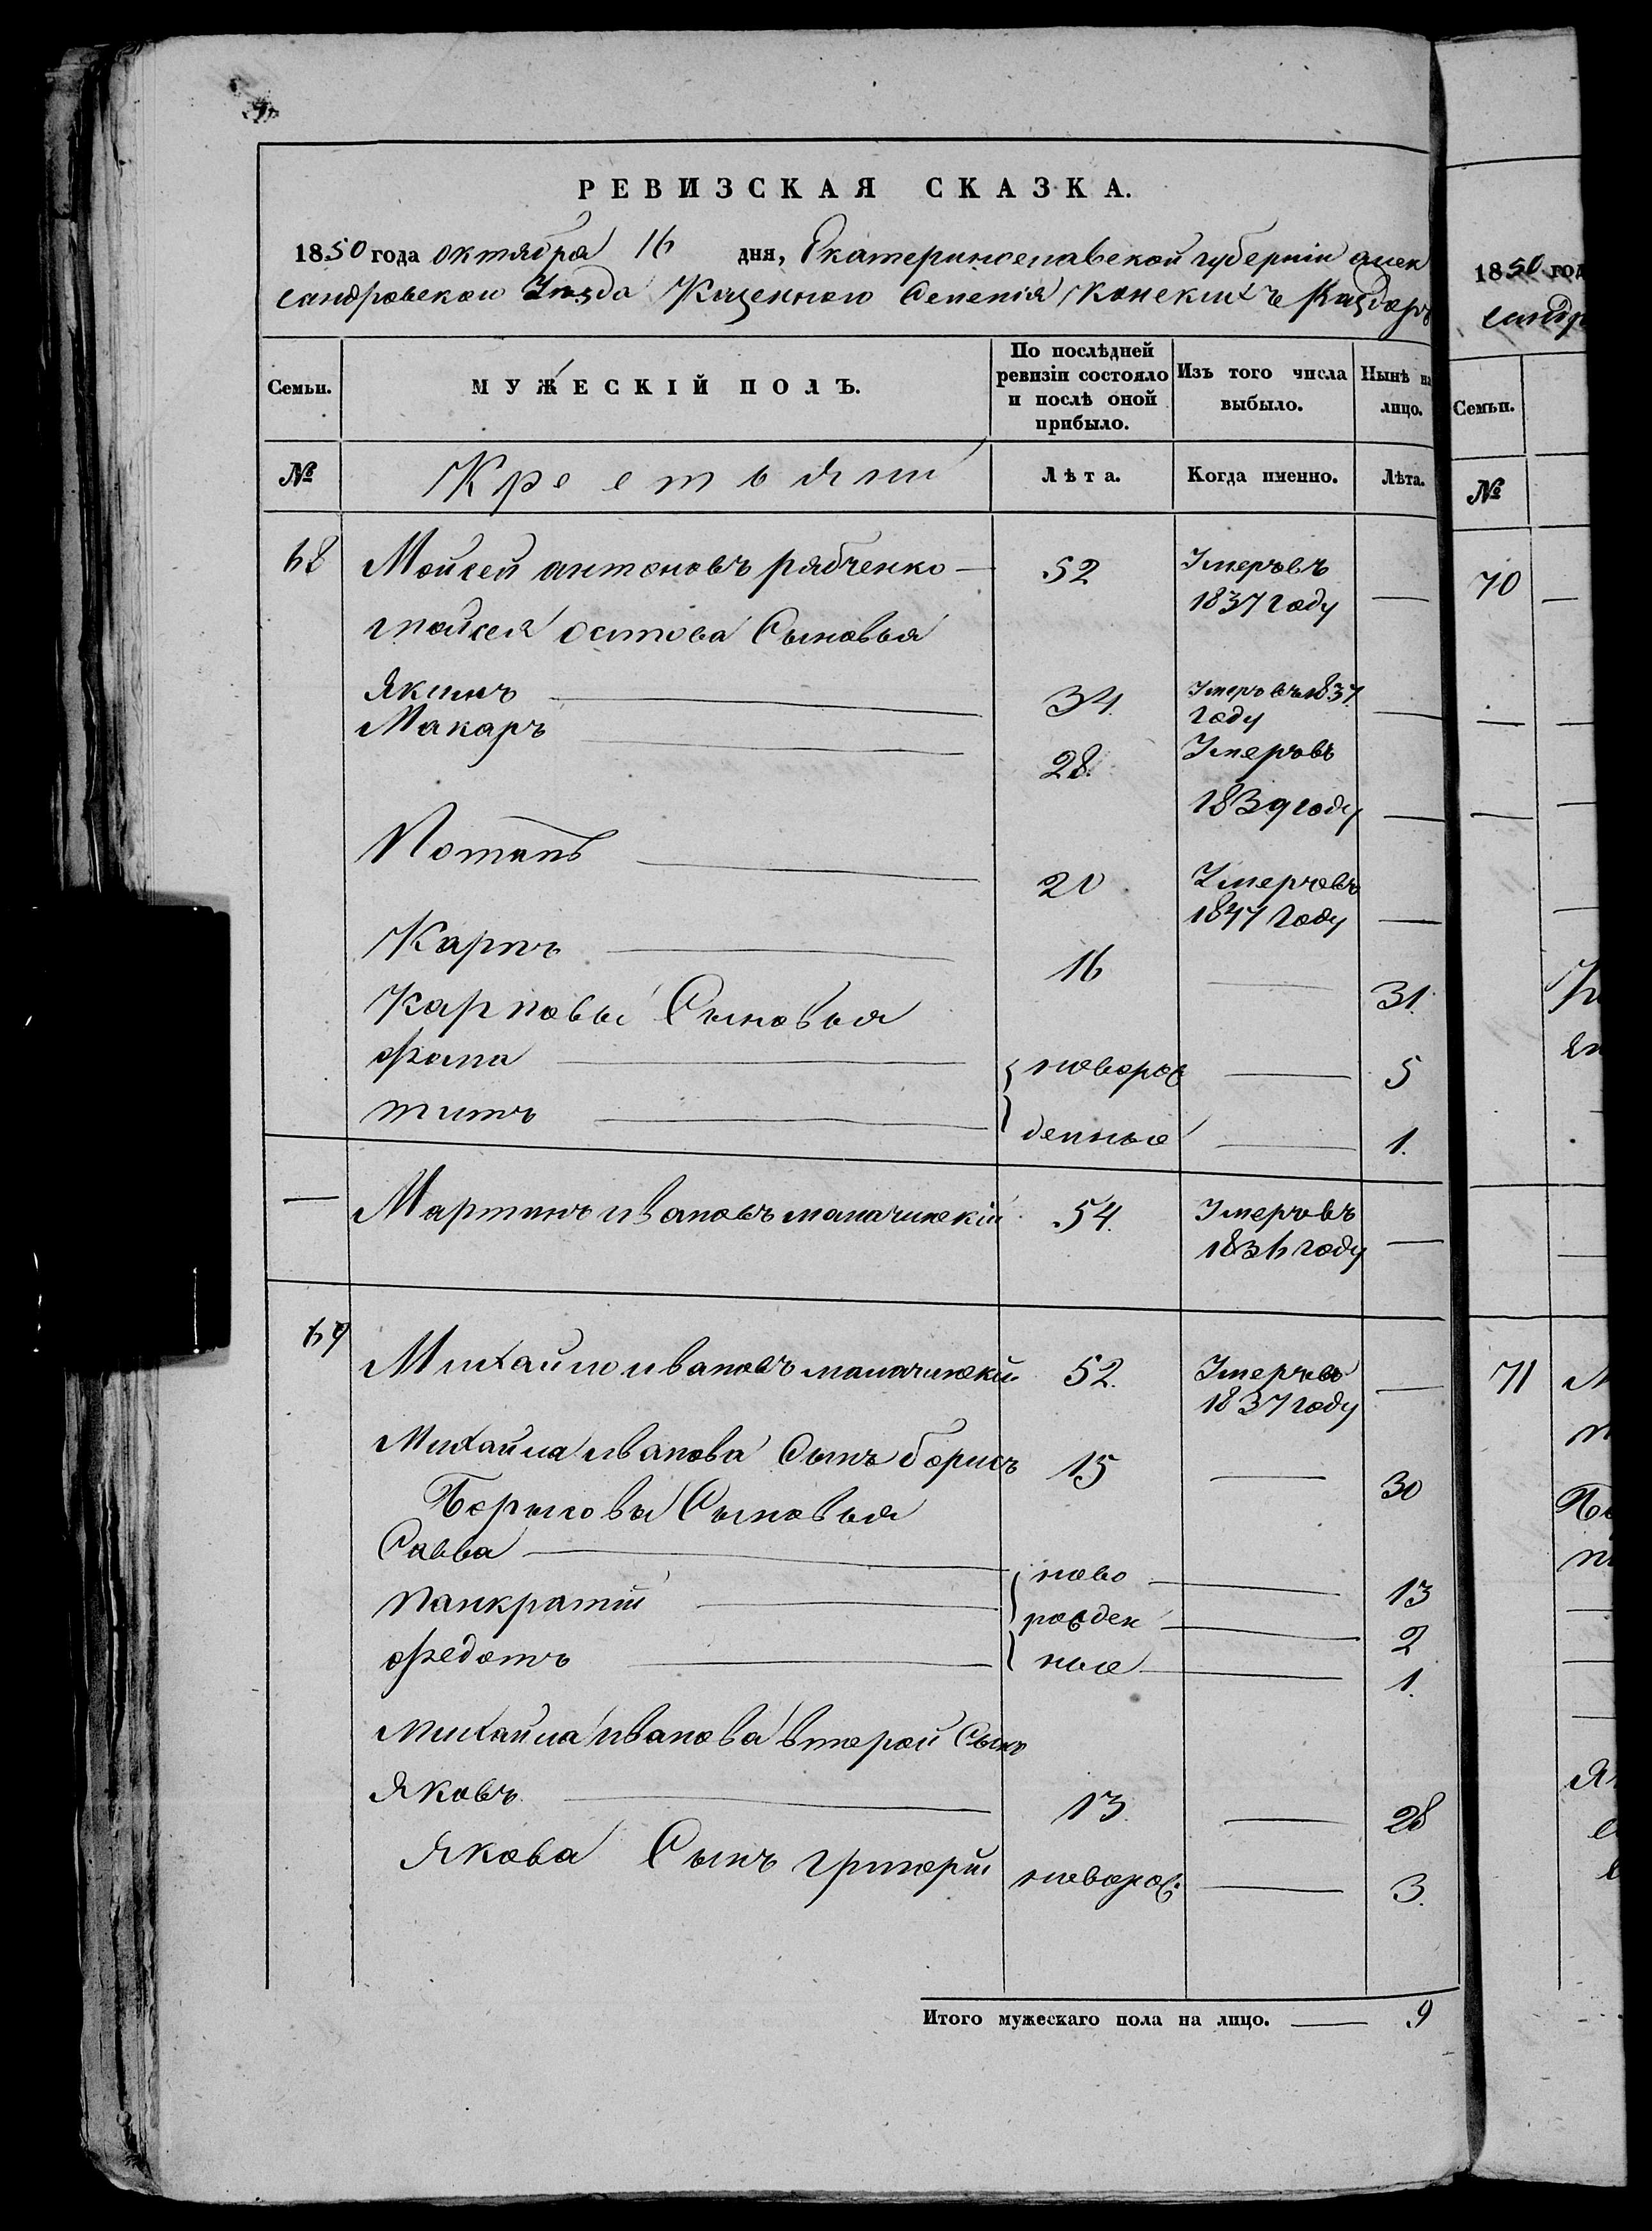 РЕВИЗСКАЯ СКАЗКА.
1850 года октября 16 дня, Екатеринославской губернiи алек
сандровского Уезда Казеннаго Селенiя Конскихъ Раздоръ
Семьи.
МУЖЕСКIЙ ПОЛЪ.
По послѣдней ревизiи состояло и послѣ оной прибыло.
Изъ того числа выбыло.
Нынѣ на лицо.
№ Крестьяни Лѣта. Когда именно. Лѣта.
68 Мойсей антоновъ рябченко — 52 Умеръ въ 1837 году —
мойсея Сыновья
Якимъ — 34. Умеръ въ 1837 году —
Макаръ — 28. Умеръ въ 1839 году —
Потапъ — 20. Умеръ въ 1847 году —
Карпъ — 16 — 31.
Карповы Сыновья
фома — новорож — 5
титъ — денные — 1.
— Мартинъ ивановъ 54. Умеръ въ 1836 году —
69 Михайло ивановъ 52. Умеръ въ 1837 году —
Михайла иванова Сынъ борисъ 15 — 30
Борисовы Сыновья
Савва — ново — 13
панкратiй — рожден — 2
федотъ — ные — 1.
михайла иванова второй Сынъ
Яковъ — 13. — 28
Якова Сынъ григорiй новорож. — 3.
Итого мужескаго пола на лицо. — 9
1850 год
сандр
Семьи.
№
70
71